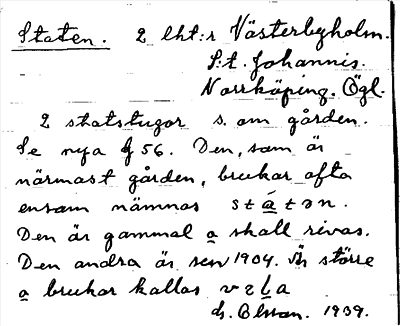 Staten. 2 lht:r Västerbyholm.
S:t. Johannis.
Norrköping. Ögl.
2 statstugor s. om gården.
Se nya g 56. Den, som är
närmast gården, brukar ofta
ensam nämnas státən.
Den är gammal o skall rivas.
Den andra är sen 1904. Är större
o brukar kallas
Olsson. 1939.